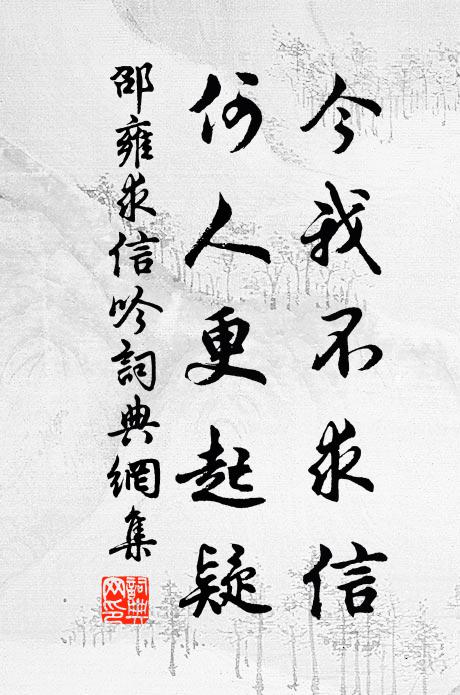 今我不求信
何人更起疑
邵雍求信吟詞典網集
詞典網印